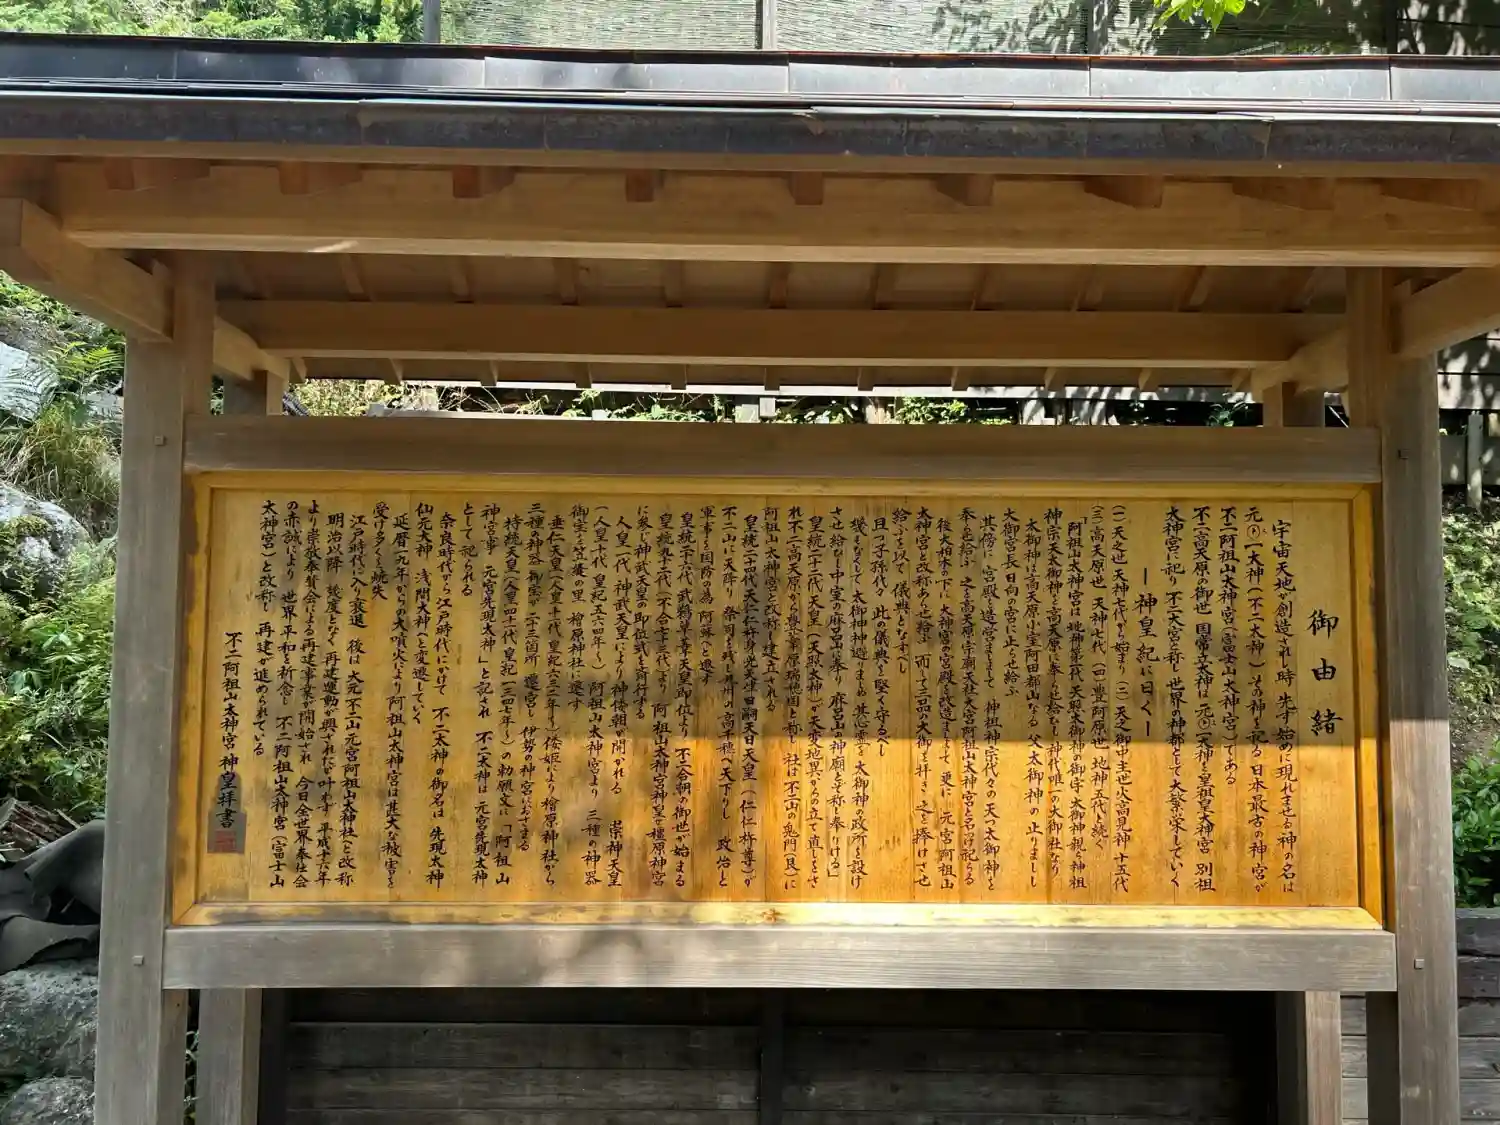 御由緒
宇宙天地が創造されし時 先ず始めに現れませる神の名は
元 一大神(不二太神)その神を祀る 日本最古の神宮が
不二阿祖山太神宮(富士山太神宮)である
不二高天原の御世 国常立大神は 元 一天神を皇祖皇大神宮 別祖
太神宮に祀り 不二大宮と称し 世界の神都として大繁栄していく
―神皇紀に曰く―
(一)天之世 天神七代から始まり(二)天之御中主世 火高見神十五代
(三)高天原世 天神七代(四)豊阿原世 地神五代と続く
「阿祖山太神宮は 地神第一代 天照太御神の御侍 太御神 親ら神祖
神宗天太御神を高天原に奉る 神代唯一の大御社なり
太御神は高天原小室阿田都山なる 父太御神の止りまし
大御宮 長日向の宮に止らせ給ふ
其傍に 宮殿を造営ましまして 神祖神宗代々の天つ太御神を
奉る給ふ 之を高天原宗廟天社大宮阿祖山太神宮と名づけ祀らる
後大柏木の下に 大神宮の宮殿を改造ましまして 更に 元宮阿祖山
太神宮と改称あらせ給ふ 而して三品の大御宝を拝き 之を捧げさせ
給ふを以て 儀典となすべし
且つ子孫代々 此の儀典を堅く守るべし
幾もなくして 太御神神避りましぬ 其心霊を 太御神の政所を設け
させ給ひし中室の麻呂山に奉り 麻呂山の神廟とぞ称し奉りける」
皇統二十二代天皇(天照太神)が 天変地異からの立て直しをさ
れ 不二高天原から 豊葦原瑞穂国と称し 社は不二山の鬼門(艮)に
阿祖山太神宮と改称し 建立される
皇統二十四代天仁杵身光天津日嗣天日天皇(仁仁杵尊)が
不二山に天降り 祭司を残し 九州の高千穂へ天下りし 政治と
軍事を国防の為 阿蘇へと遷す
皇統二十六代 武 天皇御即位より 不二合朝の御世が始まる
皇統九十二代(不合七十三代)より 阿祖山太神宮神皇が橿原神宮
に参じ 神武天皇の即位式を斎行する
人皇一代 神武天皇により 神倭朝が開かれる 崇神天皇
(人皇十代 皇紀五六四年～) 阿祖山太神宮より 三種の神器
御宝を 笠 の里 檜原神社に遷す
垂仁天皇(人皇十一代 皇紀六三二年～)倭姫により 檜原神社から
三種の神器 御宝が二十三箇所 遷宮し 伊勢の神宮におさまる
持統天皇(人皇四十一代 皇紀一三四七年～)の勅願文に「阿祖山
神宮亭 元宮先現太神」と記され 不二太神は 元宮先現太神
として 祀られる
奈良時代から江戸時代にかけて 不二太神の御名は 先現太神
仙元大神 浅間大神 と変遷していく
延暦一九年からの大噴火により 阿祖山太神宮は甚大な被害を
受け 多くを焼失
江戸時代に入り衰退 後は 大元不二山元宮阿祖山太神社と改称
明治以降 幾度となく 再建運動が興されたが叶わず 平成十六年
より 崇敬奉賛会による再建事業が開始され 今日 全世界奉仕会
の赤誠により 世界平和を祈念し 不二阿祖山太神宮(富士山
太神宮)と改称し 再建が進められている
不二阿祖山太神宮 神皇拝書